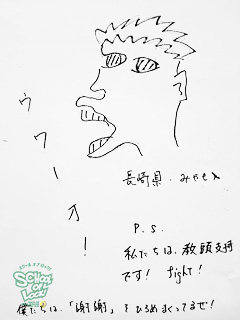 ウワーオ!
長崎県.みやせん
P.S.
私たちは、教頭支持
です! fight!
SCHOOL
OF
LOCK!
僕たちは、「謝謝」をひろめまくってるぜ!